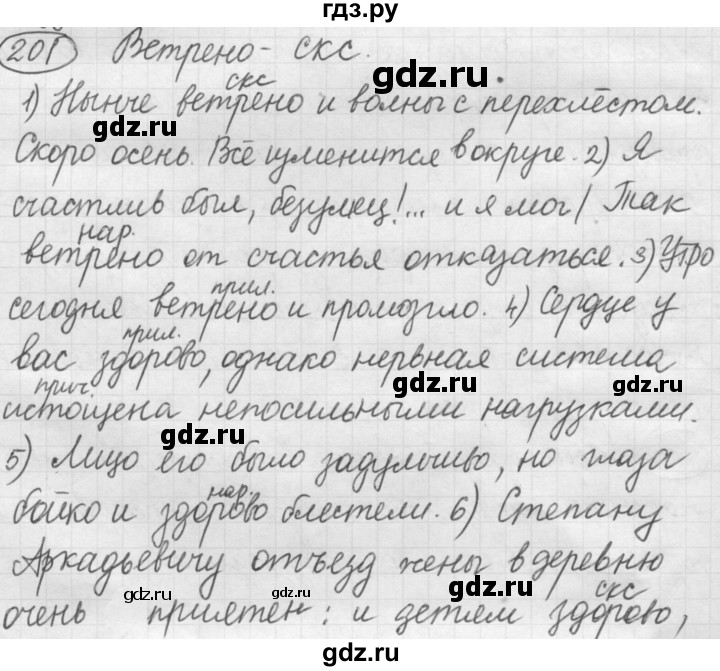 гдз.ру
201 Ветрено - скс.
gdz.ru
скс
1) Нынче ветрено и волны с перехлёстом.
gdz.ru gdz.ru
Скоро осень. Всё изменится в округе. 2) Я
счастлив был, безумец!... и я мог / Так
нар.
ветрено от счастья отказаться. 3) Утро
прил.
сегодня ветрено и промозгло. 4) Сердце у
прил.
вас здорово, однако нервная система
gdz.ru gdz.ru
прич.
истощена непосильными нагрузками.
gdz.ru
5) Лицо его было задумчиво, но глаза
нар.
бойко и здорово блестели. 6) Степану
Аркадьевичу отъезд жены в деревню
gdz.ru gdz.ru
скс
очень приятен: и детям здорово,
gdz.ru